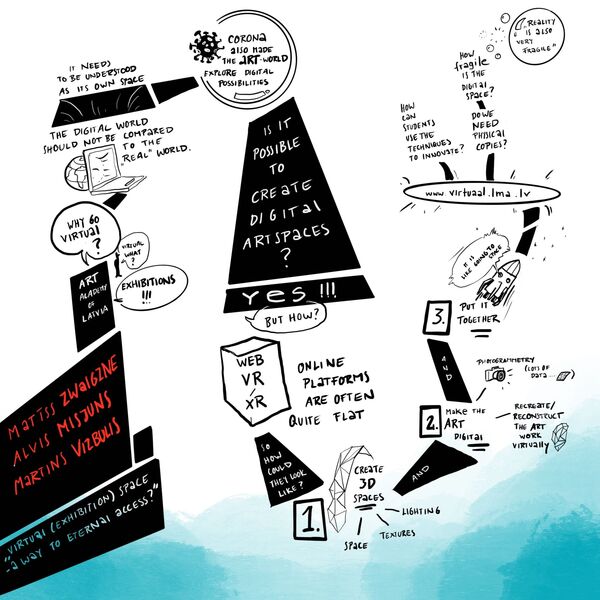 "VIRTUAL (EXHIBITION) SPACE
- A WAY TO ETERNAL ACCESS?"
MATĪSS ZWAIGZNE
ALVIS MISJUNS
MARTINS VIZBULIS
ART
ACADEMY
OF
LATVIA
WHY GO
VIRTUAL
?
VIRTUAL
WHAT
?
EXHIBITIONS
!!!
THE DIGITAL WORLD
SHOULD NOT BE COMPARED
TO THE
"REAL" WORLD.
IT NEEDS
TO BE UNDERSTOOD
AS ITS OWN SPACE
CORONA
ALSO MADE
THE ART-WORLD
EXPLORE DIGITAL
POSSIBILITIES
IS IT
POSSIBLE
TO
CREATE
DIGITAL
ARTSPACES
?
YES!!!
BUT HOW?
WEB
VR
/
XR
ONLINE
PLATFORMS
ARE OFTEN
QUITE FLAT
SO
HOW
COULD
THEY LOOK
LIKE?
1.
CREATE
3D
SPACES
LIGHTING
TEXTURES
SPACE
AND
2.
MAKE THE
ART
DIGITAL
RECREATE/
RECONSTRUCT
THE ART
WORK
VIRTUALLY
PHOTOGRAMMETRY
(LOTS OF
DATA...
)
AND
3.
PUT IT
TOGETHER
"IT IS
LIKE GOING TO
SPACE"
www.virtual.lma.lv
HOW
CAN
STUDENTS
USE THE
TECHNIQUES
TO INNOVATE?
DO WE
NEED
PHYSICAL
COPIES?
HOW
fragile
IS THE
DIGITAL
SPACE?
"REALITY
IS ALSO
VERY
FRAGILE"